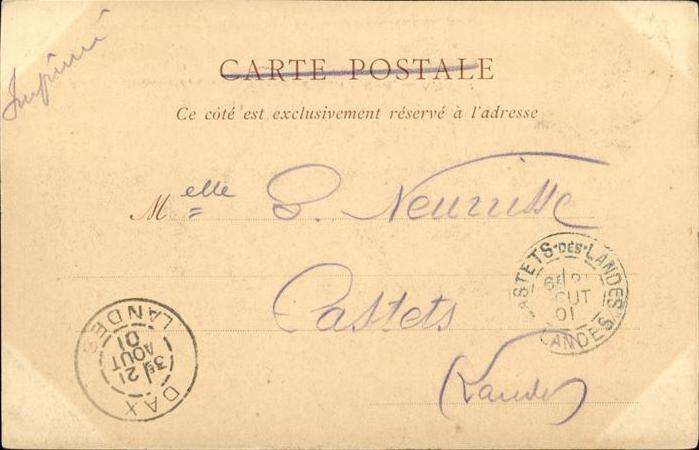 Imprimé
CARTE POSTALE
Ce côté est exclusivement réservé à l'adresse
Melle
Neurisse
Castets
(Landes)
CASTETS-DES-LANDES
21
AOUT
01
LANDES
DAX LANDES
3E
21
AOUT
01